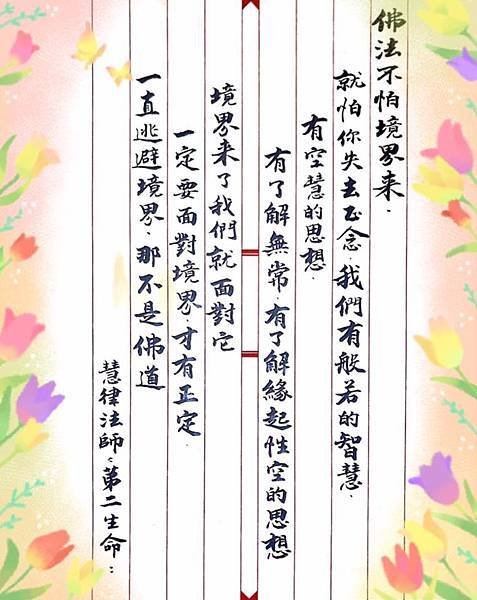 佛法不怕境界來．
就怕你失去正念．我們有般若的智慧．
有空慧的思想．
有了解無常．有了解緣起性空的思想
境界來了我們就面對它
一定要面對境界．才有正定．
一直逃避境界．那不是佛道
慧律法師：第二生命：